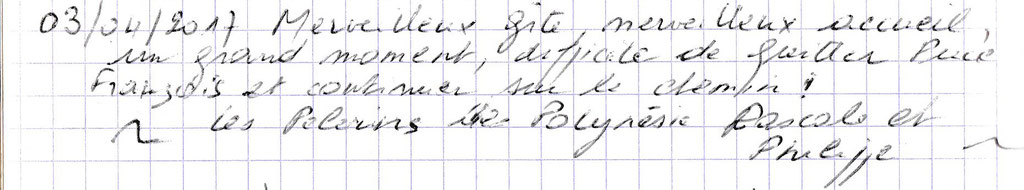 03/04/2017 Merveilleux gîte, merveilleux accueil,
un grand moment, difficile de quitter
François et continuer sur le chemin!
Les Pelerins de Polynésie Pascale et
Philippe